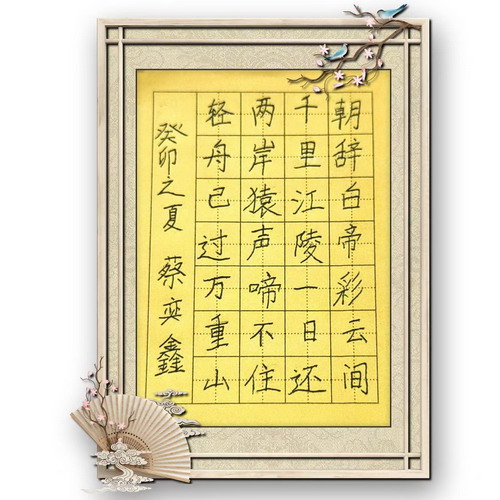 朝辞白帝彩云间
千里江陵一日还
两岸猿声啼不住
轻舟已过万重山
癸卯之夏 蔡奕鑫